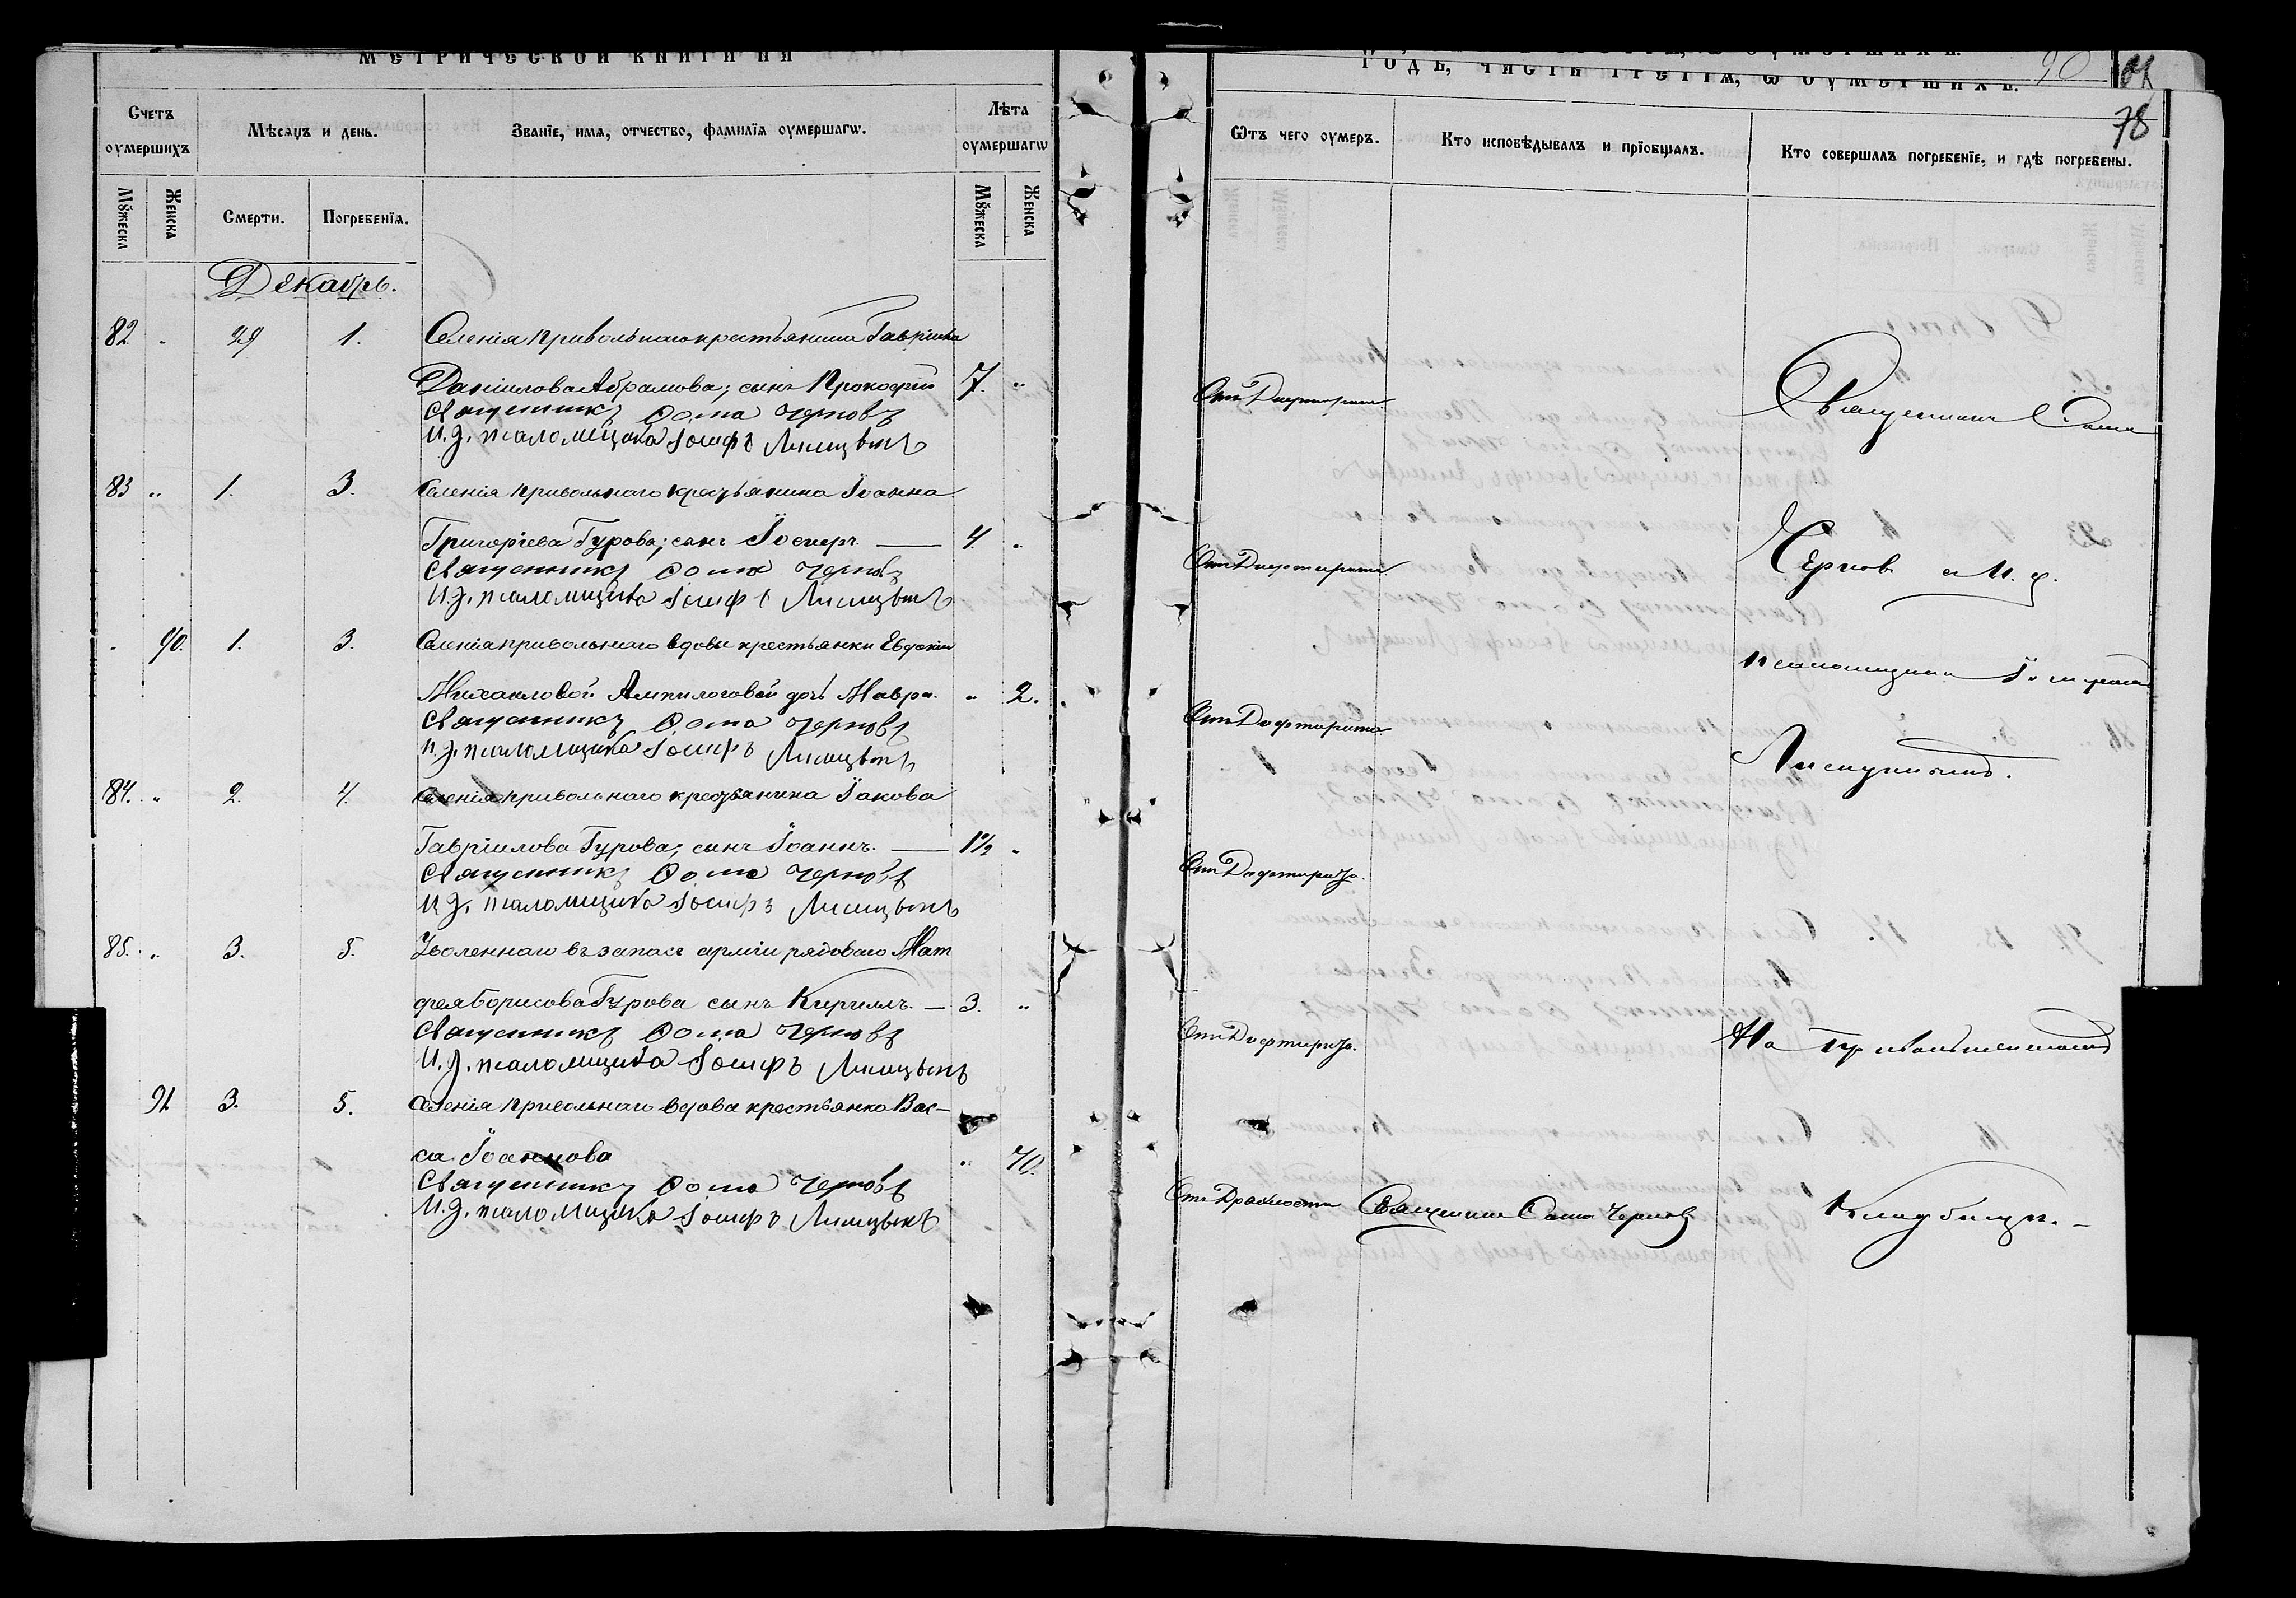 МЕТРИЧЕСКОЙ КНИГИ НА
Счетъ оумершихъ
Мѣсяцъ и день.
Званіе, имя, отчество, фамилія оумершагѡ.
Лѣта оумершагѡ
Мꙋжеска
Женска
Смерти.
Погребенія.
Мꙋжеска
Женска
Декабрь.
82 29 1. Селенія Привольнаго крестьянина Гавріила
Даніилова Абрамова; сынъ Прокофій 7. "
Священникъ Ѳома Черновъ
И.д. псаломщика Іосифъ Лисицынъ
83 " 1. 3. Селенія Привольнаго крестьянина Іоанна
Григоріева Гурова; сынъ — 4. "
Священникъ Ѳома Черновъ
И.д. псаломщика Іосифъ Лисицынъ
90. 1. 3. Селенія Привольнаго вдовы крестьянки Евдокіи
Михайловой Ампилоговой дочь Мавра. " 2.
Священникъ Ѳома Черновъ
И.д. псаломщика Іосифъ Лисицынъ
84. " 2. 4. Селенія Привольнаго крестьянина Іакова
Гавріилова Гурова; сынъ Іоаннъ. — 1½ "
Священникъ Ѳома Черновъ
И.д. псаломщика Іосифъ Лисицынъ
85. " 3. 5. Уволеннаго въ запасъ арміи рядоваго Мат
фея Борисова Гурова сынъ Кириллъ. — 3. "
Священникъ Ѳома Черновъ
И.д. псаломщика Іосифъ Лисицынъ
91. 3. 5. Селенія Привольнаго вдова крестьянка Вас-
са Іоаннова " 70.
Священникъ Ѳома Черновъ
И.д. псаломщика Іосифъ Лисицынъ
ГОДЪ, ЧАСТЬ ТРЕТІЯ, Ѡ ОУМЕРШИХЪ.
90
78
Ѿтъ чего оумеръ.
Кто исповѣдывалъ и пріобщалъ.
Кто совершалъ погребеніе, и гдѣ погребены.
Отъ Дифтерита.
Священникъ Ѳома
Отъ Дифтерита.
Черновъ и И.д.
псаломщика Іосифъ
Отъ Дифтерита.
Лисицынъ.
Отъ Дифтерита.
Отъ Дифтерита.
На Привольненскомъ
Отъ Дряхлости Священникъ Ѳома Черновъ
Кладбищѣ. —